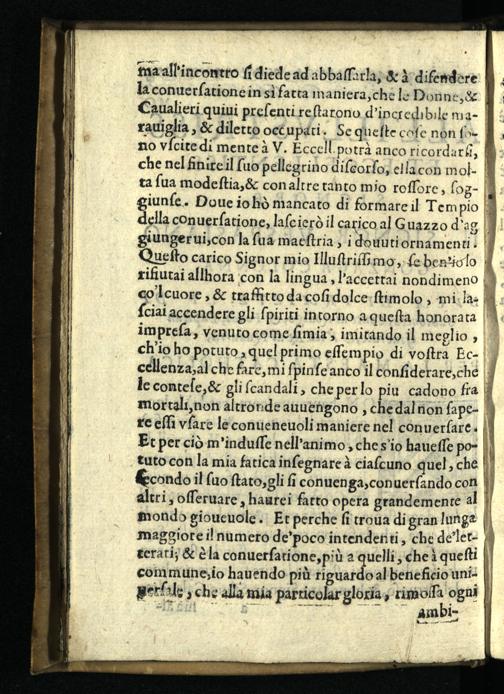 ma all'incontro si diede ad abbassarla, & à difendere
la conuersatione in sì fatta maniera, che le Donne, &
Caualieri quiui presenti restarono d'incredibile ma-
rauiglia, & diletto occupati. Se queste cose non so-
no vscite di mente à V. Eccell. potrà anco ricordarsi,
che nel finire il suo pellegrino discorso, ella con mol-
ta sua modestia, & con altre tanto mio rossore, sog-
giunse. Doue io hò mancato di formare il Tempio
della conuersatione, lascierò il carico al Guazzo d'ag
giungerui, con la sua maestria, i douuti ornamenti.
Questo carico Signor mio Illustrissimo, se ben'io lo
rifiutai allhora con la lingua, l'accettai nondimeno
co'l cuore, & traffitto da così dolce stimolo, mi la-
sciai accendere gli spiriti intorno a questa honorata
impresa, venuto come simia, imitando il meglio,
ch'io ho potuto, quel primo essempio di vostra Ec-
cellenza, al che fare, mi spinse anco il considerare, che
le contese, & gli scandali, che per lo piu cadono fra
mortali, non altronde auuengono, che dal non sape-
re essi vsare le conueneuoli maniere nel conuersare.
Et per ciò m'indusse nell'animo, che s'io hauesse po-
tuto con la mia fatica insegnare à ciascuno quel, che
secondo il suo stato, gli si conuenga, conuersando con
altri, osseruare, haurei fatto opera grandemente al
mondo gioueuole. Et perche si troua di gran lunga
maggiore il numero de'poco intendenti, che de'let-
terati, & è la conuersatione, più a quelli, che à questi
commune, io hauendo più riguardo al beneficio uni-
uersale, che alla mia particolar gloria, rimossa ogni
ambi-